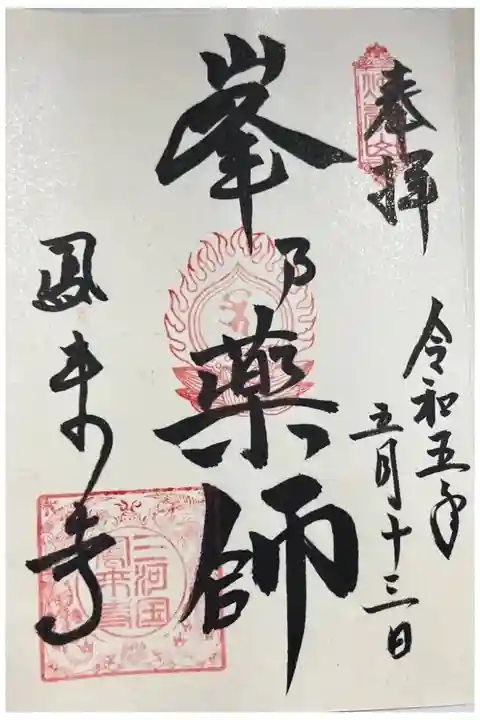 奉拝
令和五年
五月十三日
峯乃薬師
鳳来寺
煙巌山
三河国
鳳来寺